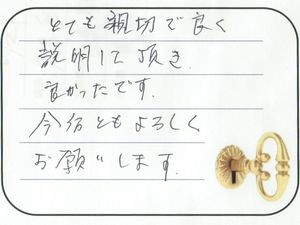 とても親切で良く
説明して頂き
良かったです。
今后ともよろしく
お願いします。